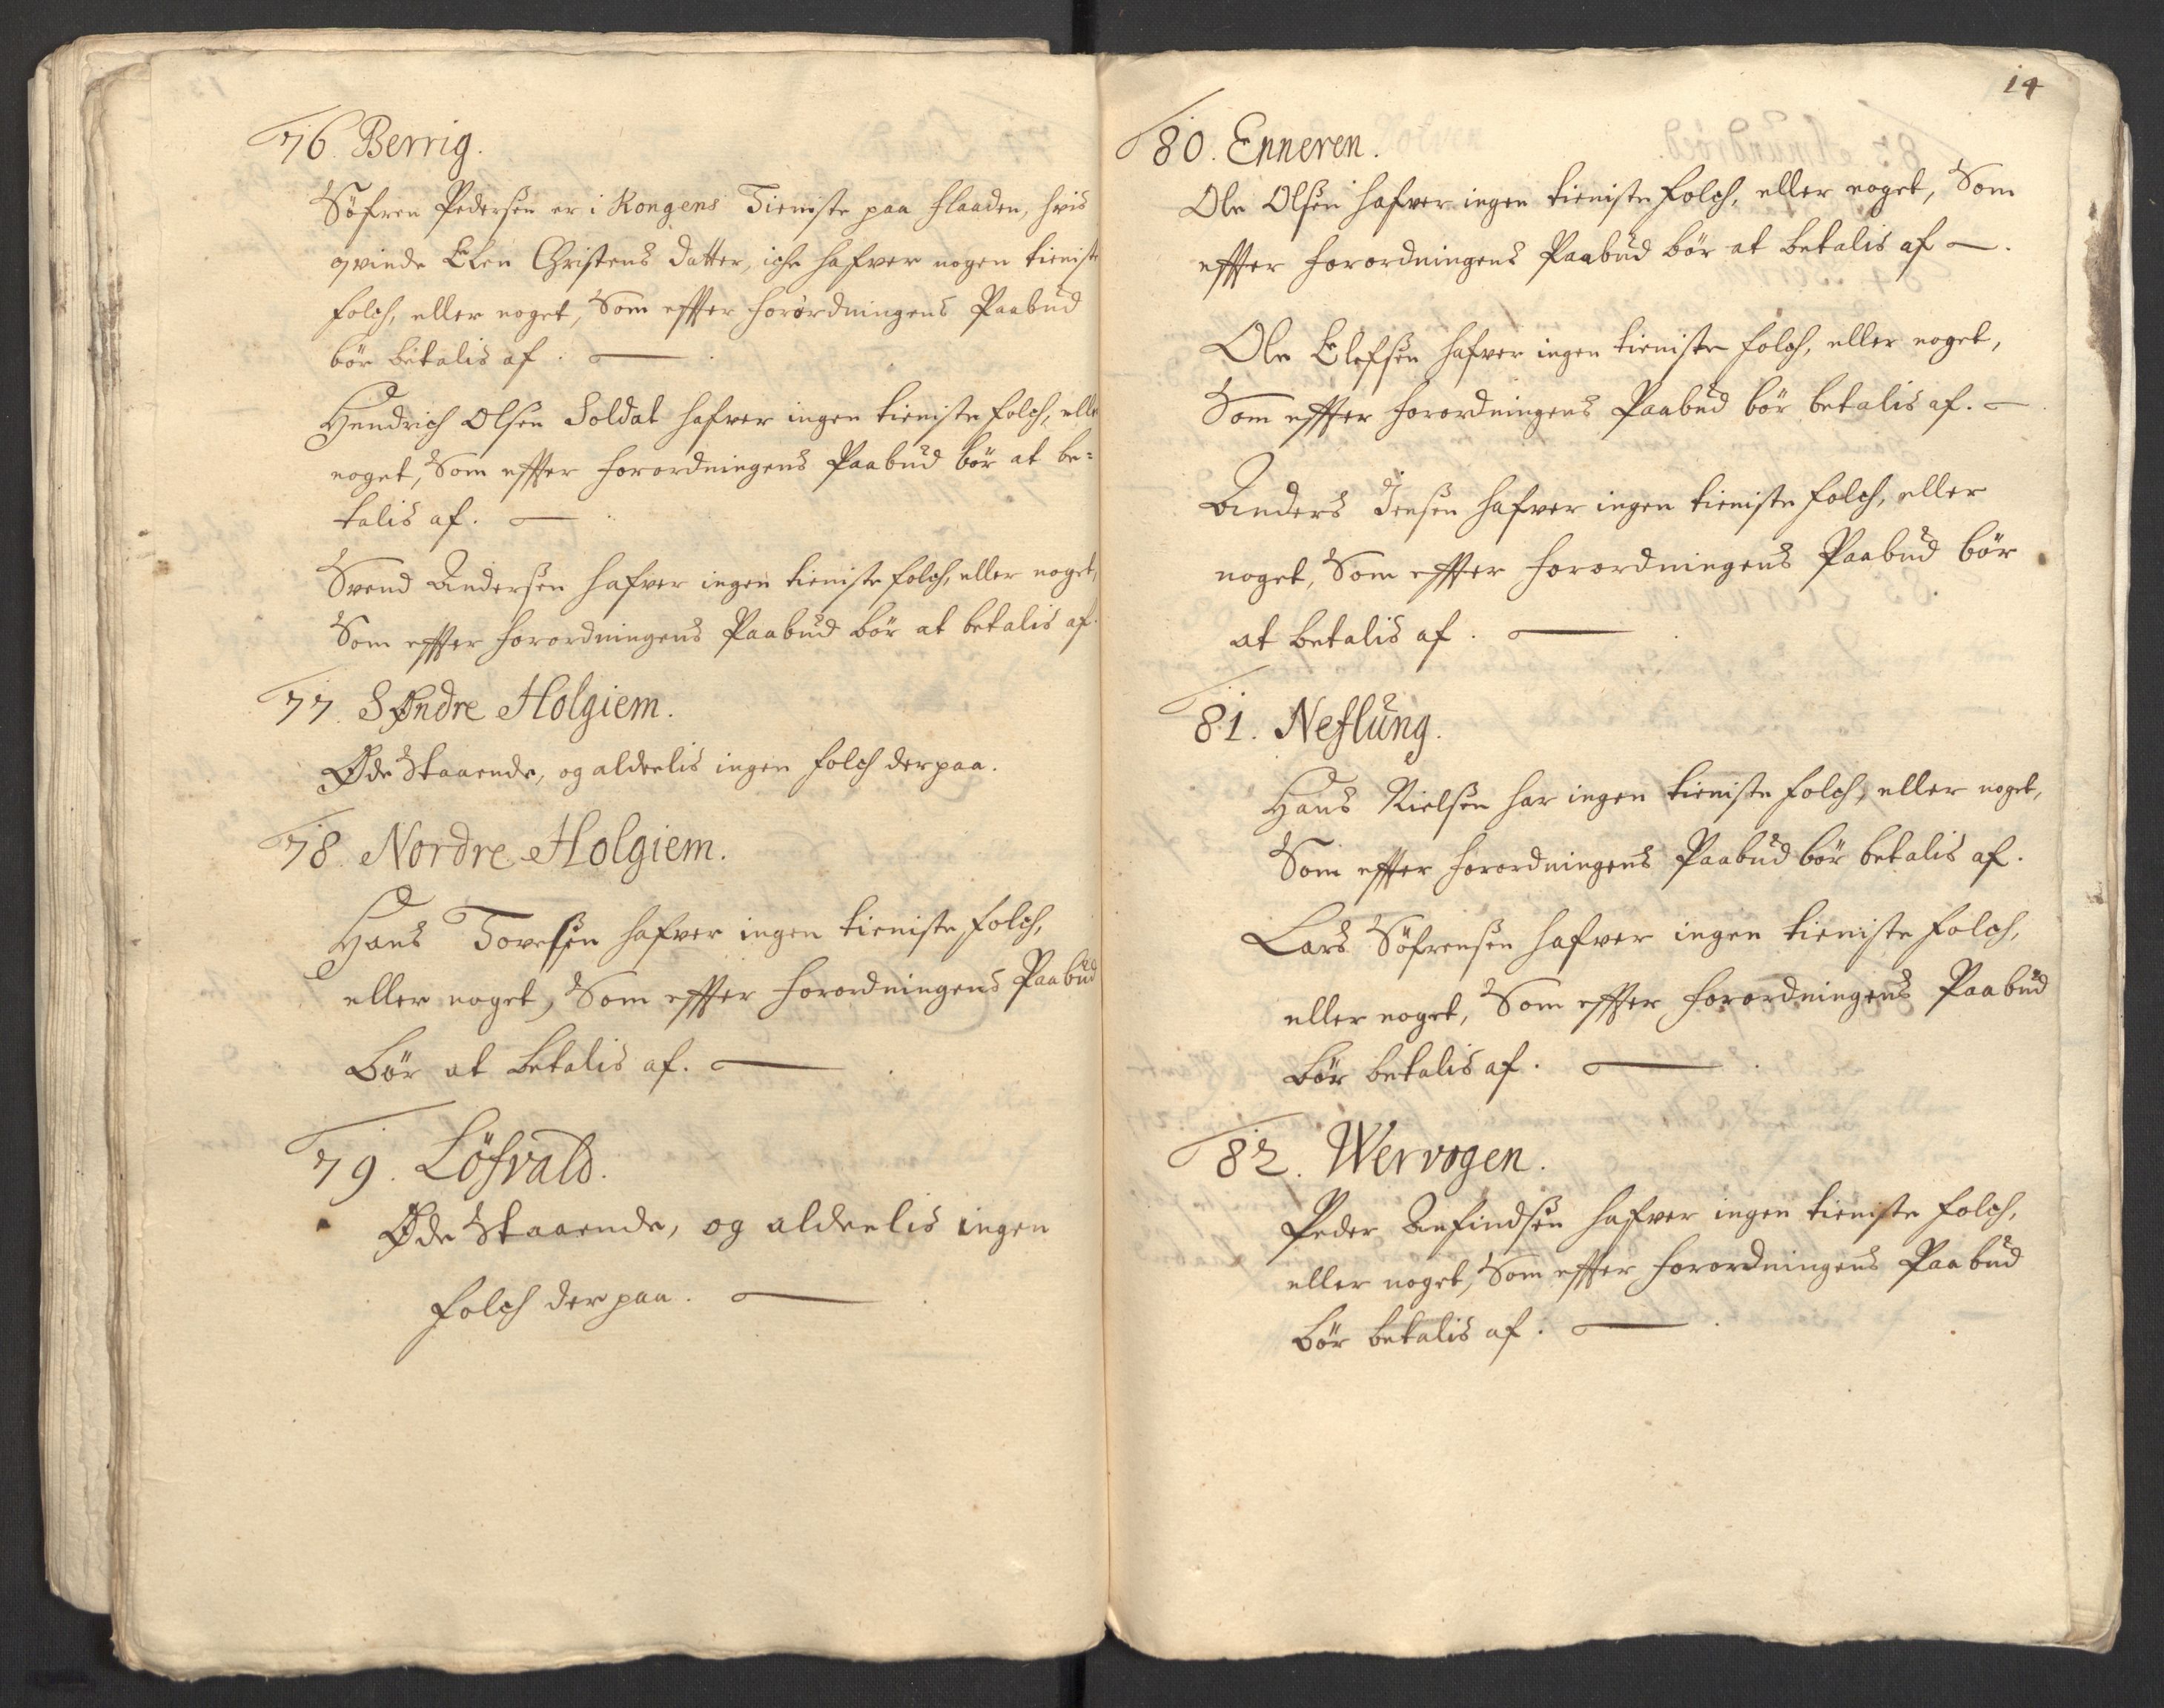 76. Berrig.
Söfren Pedersen er i Kongens Tieniste paa flaaden, hvis
qvinde Elen Christens datter, iche hafver nogen tieniste
folch, eller noget, Som effter forordningens Paabud
bör betalis af.
Hendrich Olsen Soldat hafver ingen tieniste folch, eller
noget, Som effter forordningens Paabud bör at be=
talis af.
Svend Andersen hafver ingen tieniste folch, eller noget,
Som effter forordningens Paabud bör at betalis af.
77. SØndre Holgiem.
Øde Staaende, og aldeelis ingen folch der paa.
78. Nordre Holgiem.
Hans Tovesen hafver ingen tieniste folch,
eller noget, Som effter forordningens Paabud
bör at betalis af.
79. Löfvald.
Øde Staaende, og aldeelis ingen
folch der paa.
14
80. Enneren.
Ole Olsen hafver ingen tieniste folch, eller noget, Som
effter forordningens Paabud bör at betalis af.
Ole Elefsen hafver ingen tieniste folch, eller noget,
Som effter forordningens Paabud bör betalis af.
Anders Jensen hafver ingen tieniste folch, eller
noget, Som effter forordningens Paabud bör
at betalis af.
81. Neflung.
Hans Nielsen har ingen tieniste folch, eller noget,
Som effter forordningens Paabud bör betalis af.
Lars Söfrensen hafver ingen tieniste folch,
eller noget, Som effter forordningens Paabud
bör betalis af.
82. Wervogen.
Peder Anfindsen hafver ingen tieniste folch,
eller noget, Som effter forordningens Paabud
bör betalis af.